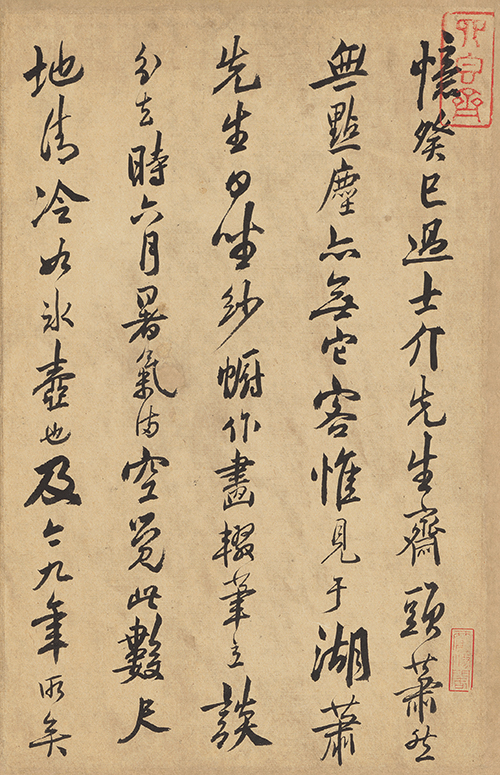 憶癸巳過士介先生齋頭蕭然
無點塵亦無它客惟見于湖蕭
先生日坐紗幮作畫輟筆立談
去時六月暑氣满空覺此數尺
地清冷如氷壺也及今九年所矣